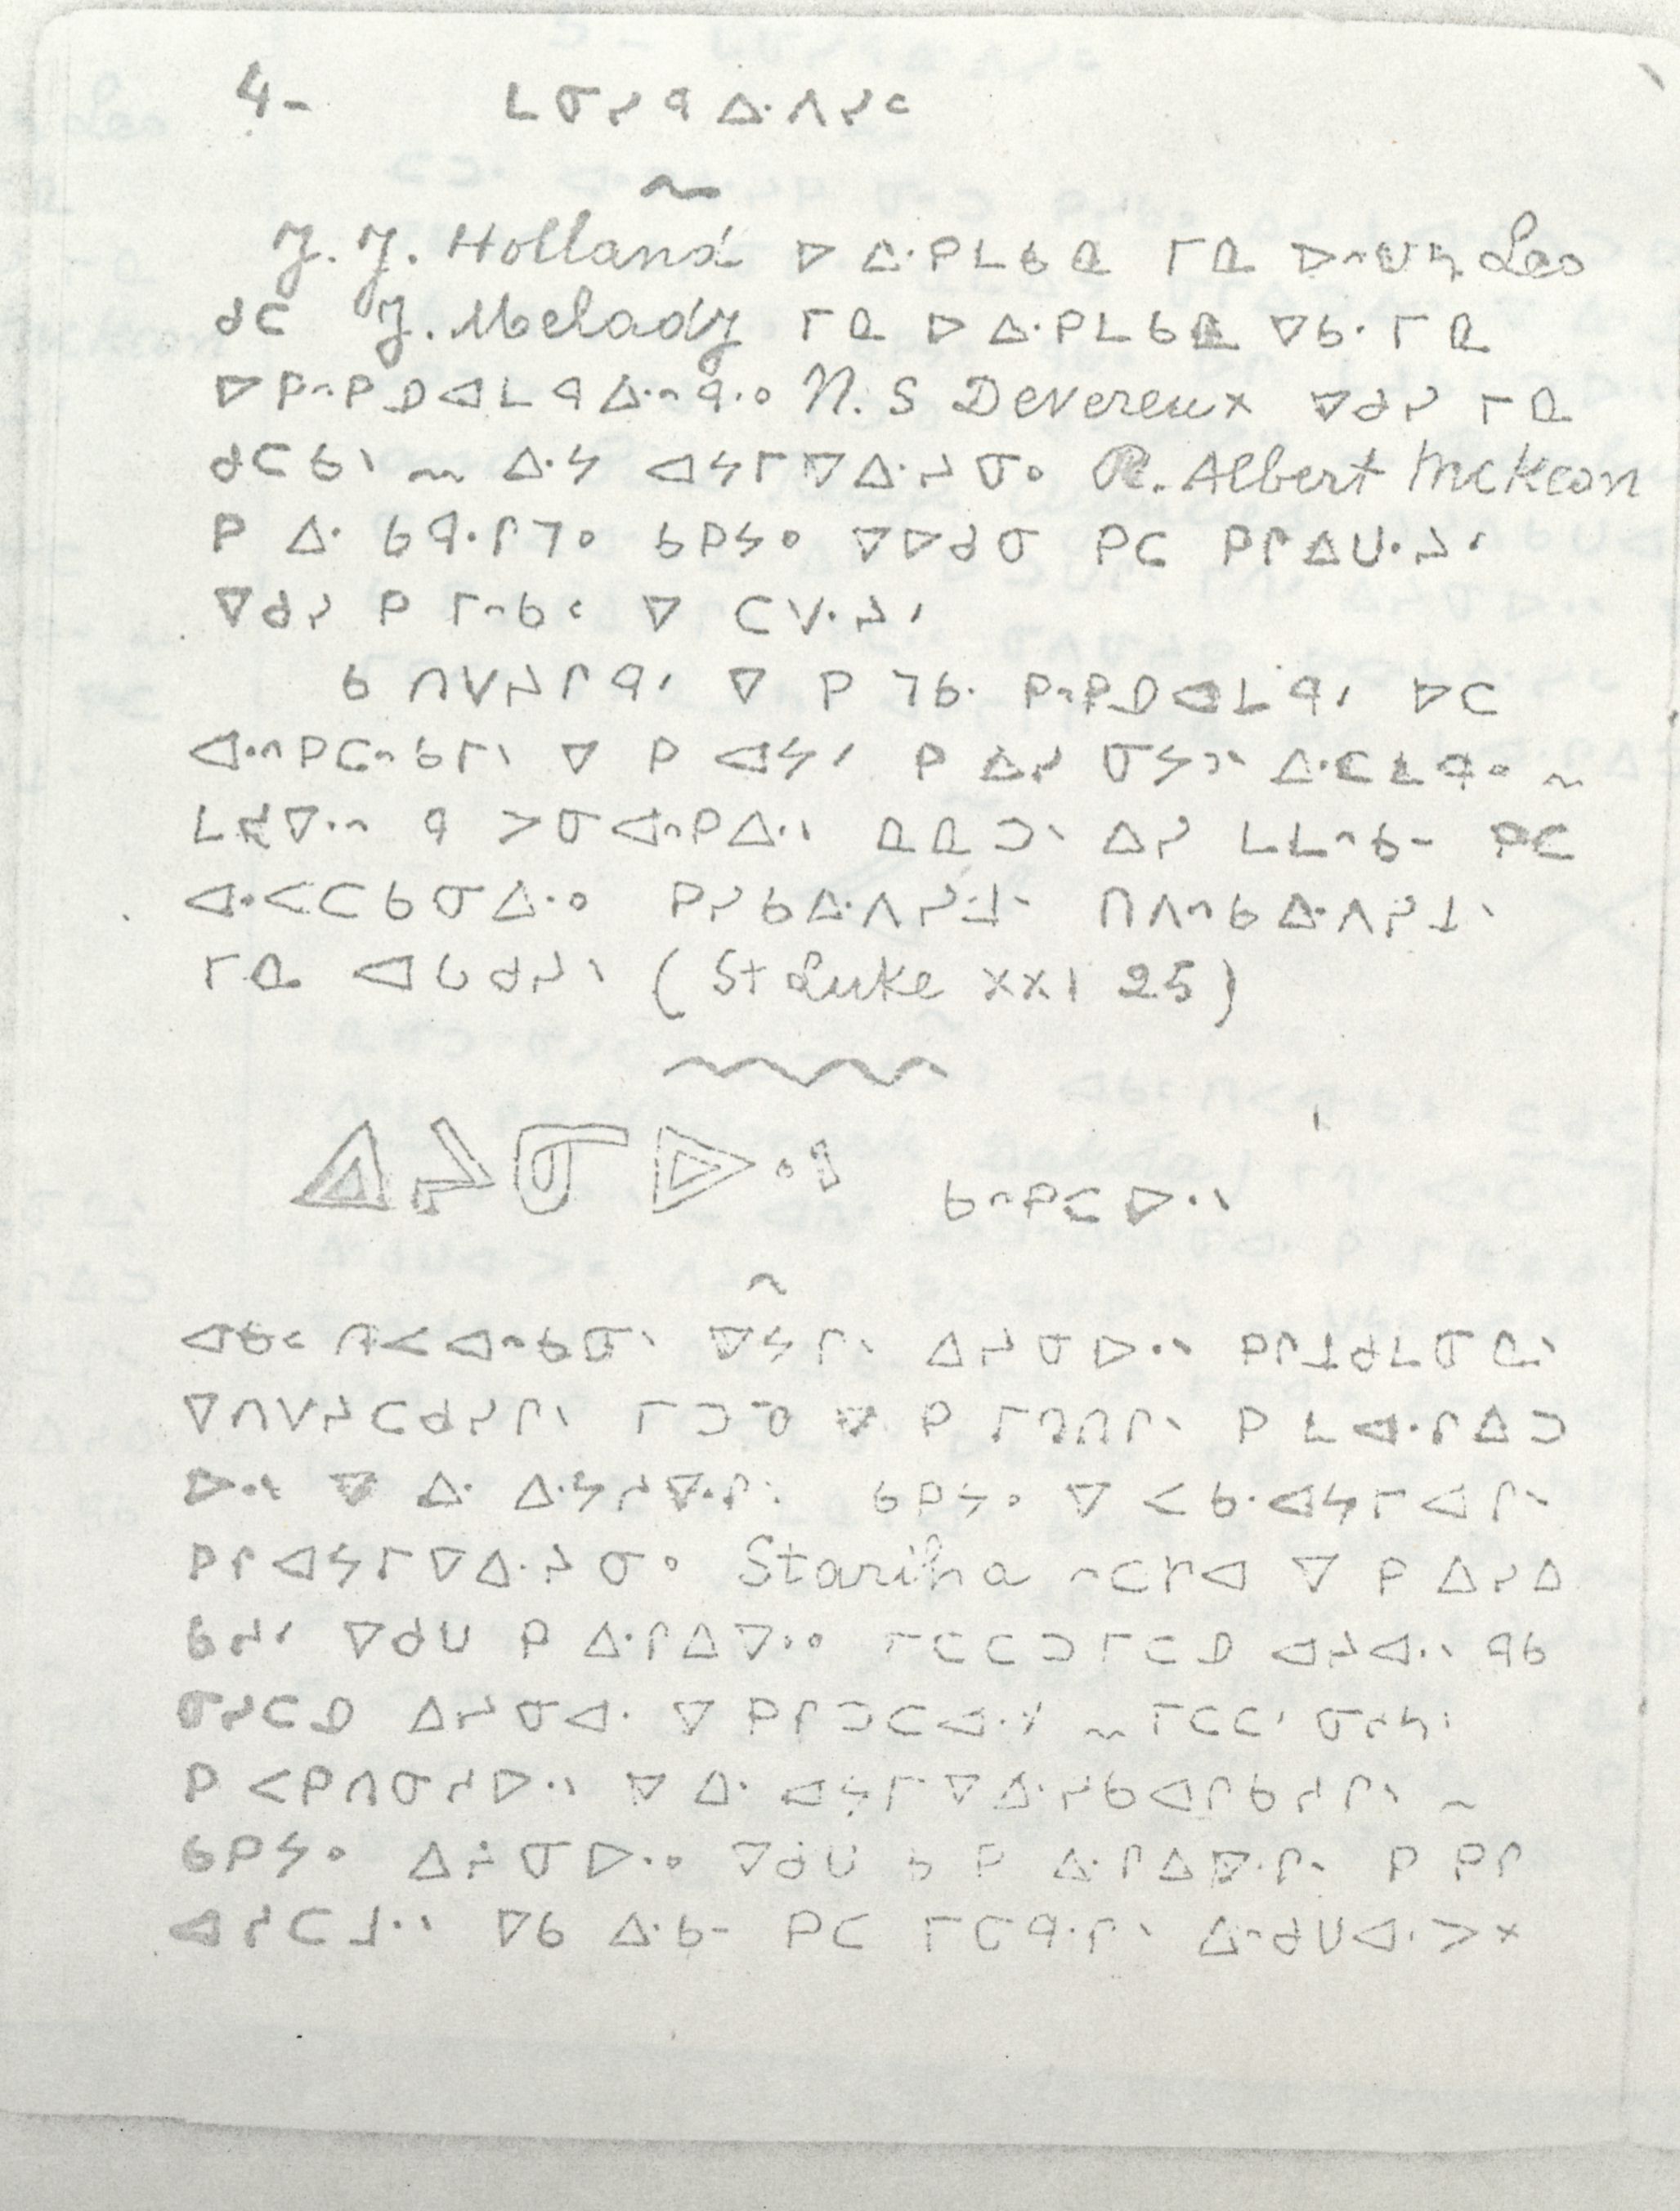 4- ᒪᓂᓯᓇᐃᐧᐱᓯᑦ
J. J. Holland ᐅ ᐃᐧᑭᒪᑲᓇ ᒥᓇ ᐅᐢᑌᓴ Leo
ᑯᑕ J. Melady ᒥᓇ ᐅ ᐃᐧᑭᒪᑲᓇ ᐁᑲᐧ ᒥᓇ
ᐅᑭᐢᑭᓄᐊᒪᑫᐃᐧᐢᑫᐧᐤ N. S Devereux ᐁᑯᓯ ᒥᓇ
ᑯᑕᑲᐠ ᐃᐧᔭ ᐊᔭᒥᐁᐃᐧᔨᓂᐤ R. Albert McKeon
ᑭ ᐃᐧ ᑲᑫᐧᒋᒣᐤ ᑲᑭᔭᐤ ᐁᐅᑯᓂ ᑭᑕ ᑭᒋᐃᑌᐧᔨᐟ
ᐁᑯᓯ ᑭ ᒥᐢᑲᐤ ᐁ ᑕᐯᐧᔨᐟ
ᑲ ᑎᐯᔨᒋᑫᐟ ᐁ ᑭ ᒣᑲᐧ ᑭᐢᑭᓄᐊᒪᑫᐟ ᐅᑕ
ᐊᐧᐢᑭᑕᐢᑲᒥᐠ ᐁ ᑭ ᐊᔭᐟ ᑭ ᐃᓯ ᓂᔭᑐᐠ ᐃᐧᑕᒪᑫᐤ
ᒪᑯᐁᐧᐢ ᑫ ᐳᓂᐊᐢᑭᐃᐧᐠ ᓇᓇᑐᐠ ᐃᓯ ᒪᒪᐢᑲᐨ ᑭᑕ
ᐊᐧᐸᑕᑲᓂᐃᐧᐤ ᑭᓯᑲᐃᐧᐱᓯᒧᐠ ᑎᐱᐢᑲᐃᐧᐱᓯᒧᐠ
ᒥᓇ ᐊᒐᑯᓯᐠ (St Luke xxi 25)
ᐃᔨᓂᐅᐧᐠ ᑲᐢᑭᑕᐅᐧᐠ
ᐊᑲᑦ ᑎᐸᐊᐢᑲᓂᐠ ᐁᔭᒋᐠ ᐃᔨᓂᐅᐧᐠ ᑭᒋᒧᑯᒪᓂᓇᐠ
ᐁᑎᐯᔨᑕᑯᓯᒋᐠ ᒥᑐᓂ ᐁ ᑭ ᒥᑎᑎᒋᐠ ᑭ ᒪᐊᐧᒋᐃᑐ
ᐅᐧᐠ ᐁ ᐃᐧ ᐃᐧᔭᓯᐁᐧᒋᐠ ᑲᑭᔭᐤ ᐁ ᐸᑲᐧᐊᔭᒥᐊᒋᐠ
ᑭᒋᐊᔭᒥᐁᐃᐧᔨᓂᐤ Stariha ᐢᑕᕆᐊ ᐁ ᑭ ᐃᓯᐃ
ᑲᓱᐟ ᐁᑯᑌ ᑭ ᐃᐧᒋᐃᐁᐧᐤ ᒥᑕᑕᑐᒥᑕᓄ ᐊᔨᐊᐧᐠ ᑫᑲ
ᓂᓯᑕᓄ ᐃᔨᓂᐊᐧ ᐁ ᑭᒋᑐᑕᐊᐧᐟ ᒥᑕᑕᐟ ᓂᔭᓴᐠ
ᑭ ᐸᑭᑎᓂᓱᐅᐧᐠ ᐁ ᐃᐧ ᐊᔭᒥᐁᐃᐧᓯᑲᐊᒋᑲᓱᒋᐠ
ᑲᑭᔭᐤ ᐃᔨᓂᐅᐧᐤ ᐁᑯᑌ ᑲ ᑭ ᐃᐧᒋᐃᐁᐧᒋᐠ ᑭ ᑭᒋ
ᐊᓱᑕᒧᐧᐠ ᐁᑲ ᐃᐧᑲᐨ ᑭᑕ ᒥᓂᑫᐧᒋᐠ ᐃᐢᑯᑌᐊᐧᐳ᙮